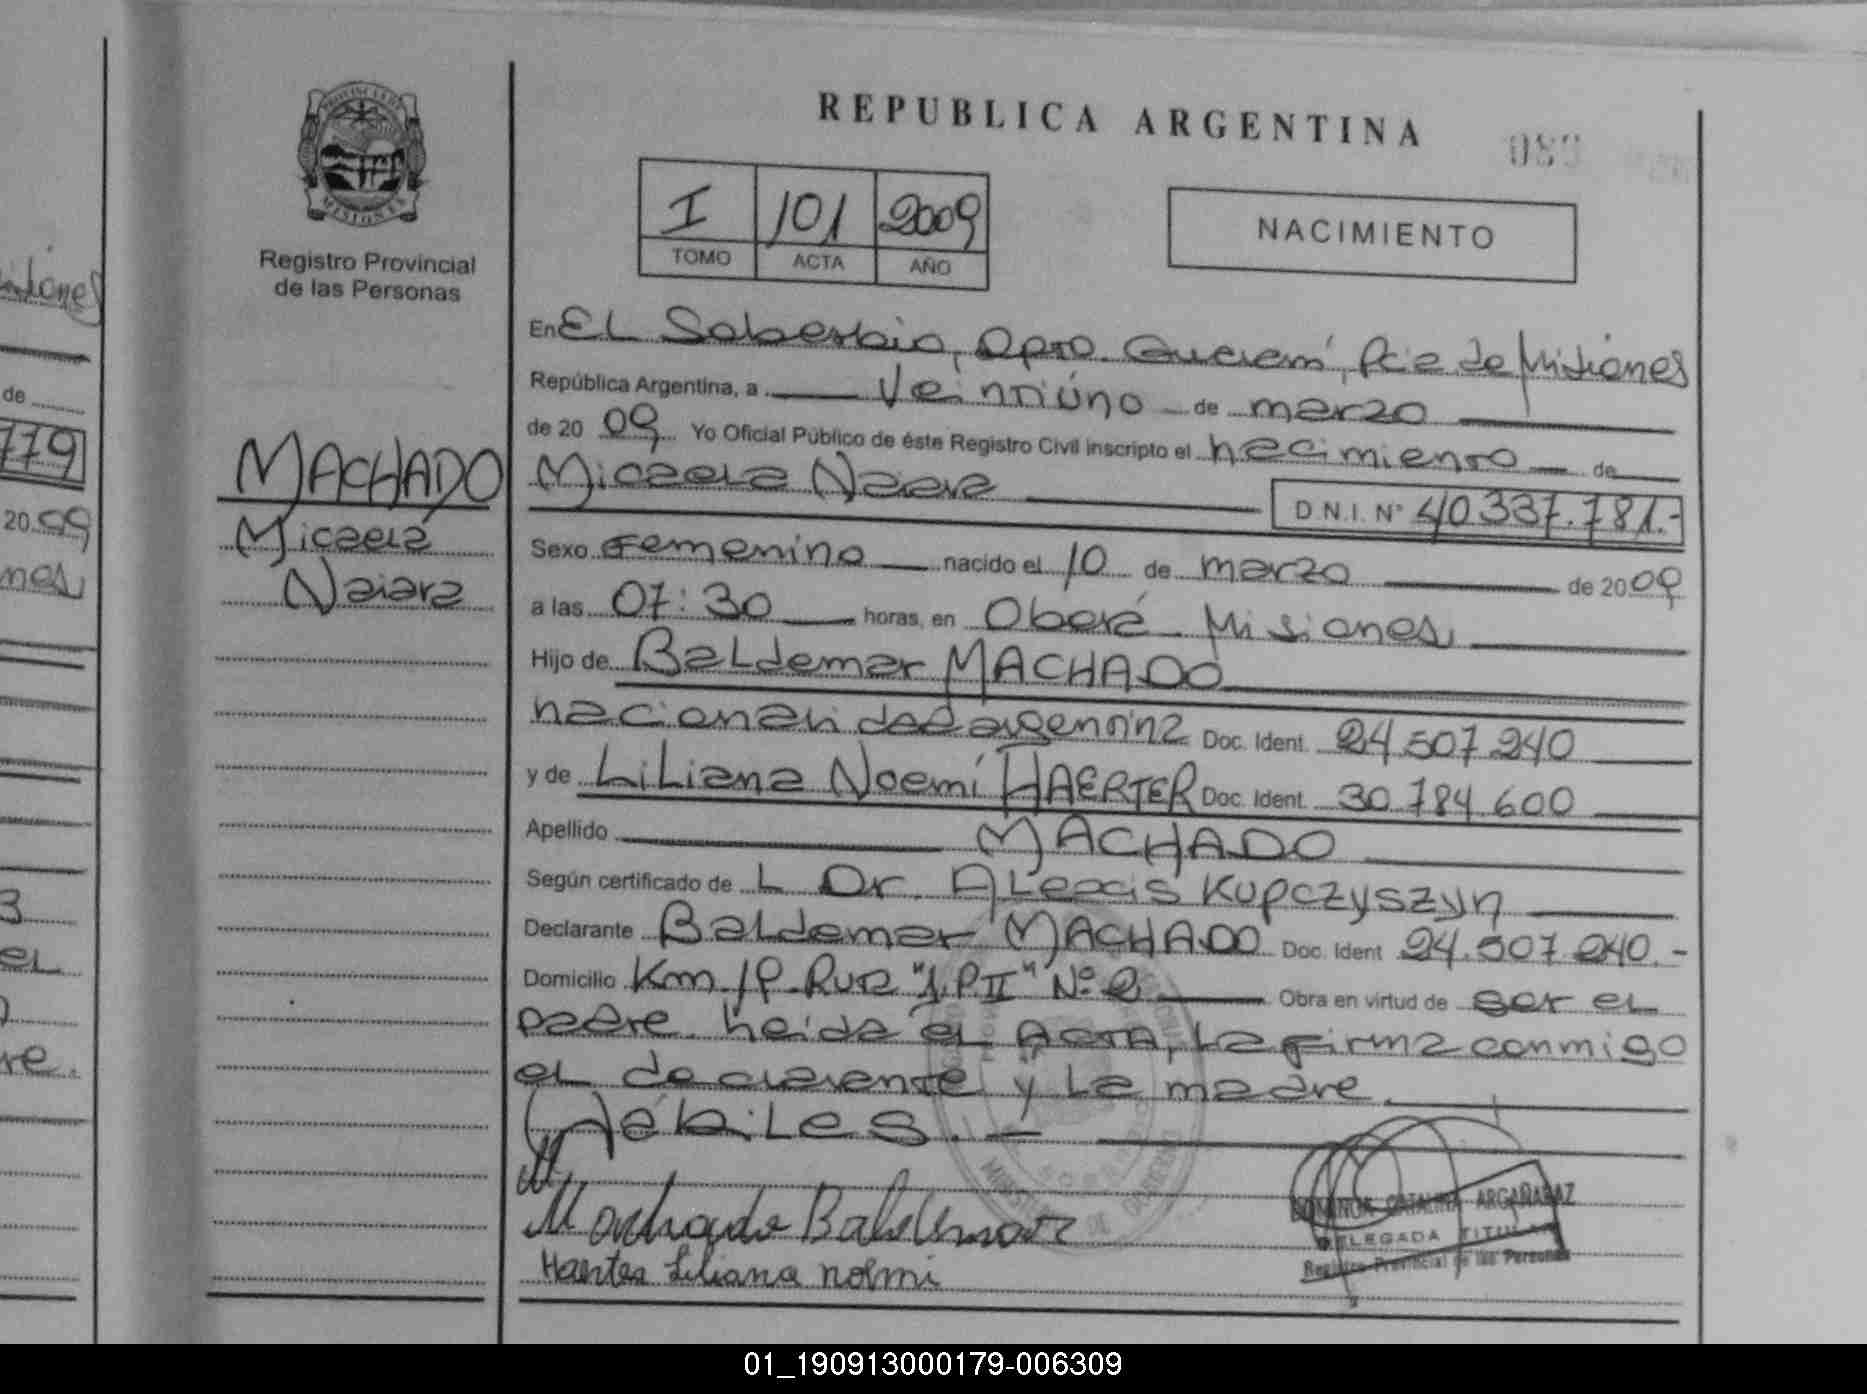 REPUBLICA ARGENTINA
PROVINCIA DE
MISIONES
Registro Provincial
de las Personas
I 101 2009
TOMO ACTA AÑO
NACIMIENTO
En EL Soberbio, Dpto. Guaraní, Pcia de Misiones
República Argentina, a Veintiúno de marzo
de 20 09 Yo Oficial Público de éste Registro Civil inscripto el nacimiento de
Micaela Naiara D.N.I. N° 40.337.781.-
MACHADO
Micaela
Naiara
Sexo Femenino nacido el 10 de marzo de 2009
a las 07:30 horas, en Oberá Misiones
Hijo de Baldemar MACHADO
nacionalidad argentina Doc. Ident. 24.507.240
y de Liliana Noemí HAERTER Doc. Ident. 30.784.600
Apellido MACHADO
Según certificado de L Dr. Alexis Kupczyszyn
Declarante Baldemar MACHADO Doc. Ident 24.507.240.-
Domicilio Km. 19 Ruta "J.P.II" Nº 2 Obra en virtud de ser el
padre. heida el Acta, la firma conmigo
el declarante y la madre.
Hábiles.-
Machado Baldemar
Haerter Liliana noemi
ROMINA CATALINA ARGAÑARAZ
DELEGADA TITULAR
Registro Provincial de las Personas
779
20 09
de
01_190913000179-006309